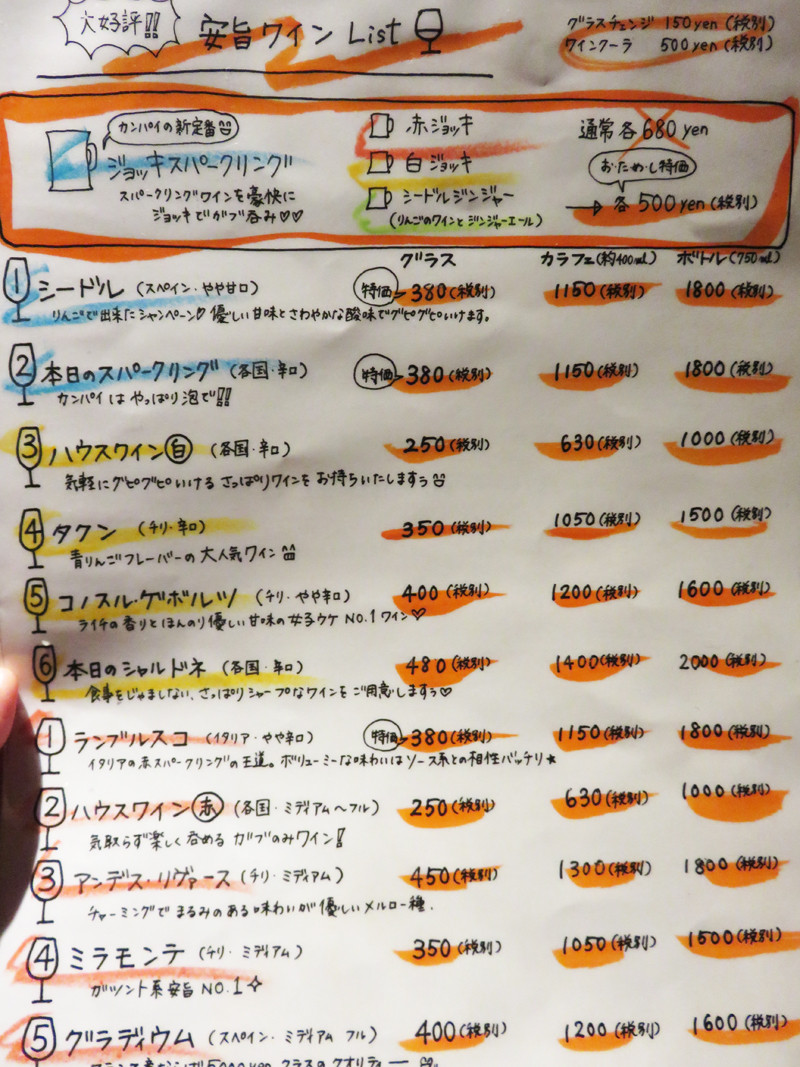 大好評!!
安旨ワイン List
グラスチェンジ 150yen (税別)
ワインクーラ 500yen (税別)
カンパイの新定番
ジョッキスパークリング
スパークリングワインを豪快に
ジョッキでガブ呑み♡♡
赤ジョッキ
白ジョッキ
シードルジンジャー
(りんごのワインとジンジャーエール)
通常各680yen
おためし特価
→ 各500yen(税別)
グラス カラフェ(約400ml) ボトル(750ml)
1 シードル (スペイン・やや甘口) 特価 380(税別) 1150(税別) 1800(税別)
りんごで出来たシャンペーン♡優しい甘味とさわやかな酸味でグビグビいけます。
2 本日のスパークリング (各国・辛口) 特価 380(税別) 1150(税別) 1800(税別)
カンパイはやっぱり泡で!!
3 ハウスワイン白 (各国・辛口) 250(税別) 630(税別) 1000(税別)
気軽にグビグビいける さっぱりワインを お持ちいたしますぅ
4 タクン (チリ・辛口) 350(税別) 1050(税別) 1500(税別)
青りんごフレーバーの大人気ワイン
5 コノスル・ゲボルツ (チリ・やや辛口) 400(税別) 1200(税別) 1600(税別)
ライチの香りとほんのり優しい甘味の女子ウケ NO.1ワイン♡
6 本日のシャルドネ (各国・辛口) 480(税別) 1400(税別) 2000(税別)
食事をじゃましない、さっぱりシャープなワインをご用意しますぅ♡
1 ランブルスコ (イタリア・やや辛口) 特価 380(税別) 1150(税別) 1800(税別)
イタリアの赤スパークリングの王道。ボリューミーな味わいはソース系との相性バッチリ★
2 ハウスワイン赤 (各国・ミディアム〜フル) 250(税別) 630(税別) 1000(税別)
気取らず楽しく呑める ガブのみワイン!
3 アンデス・リヴァース (チリ・ミディアム) 450(税別) 1300(税別) 1800(税別)
チャーミングで まるみのある味わいが優しいメルロー種.
4 ミラモンテ (チリ・ミディアム) 350(税別) 1050(税別) 1500(税別)
ガツント系安旨 NO.1
5 グラディウム (スペイン・ミディアム フル) 400(税別) 1200(税別) 1600(税別)
5000yen クラスのクオリティー